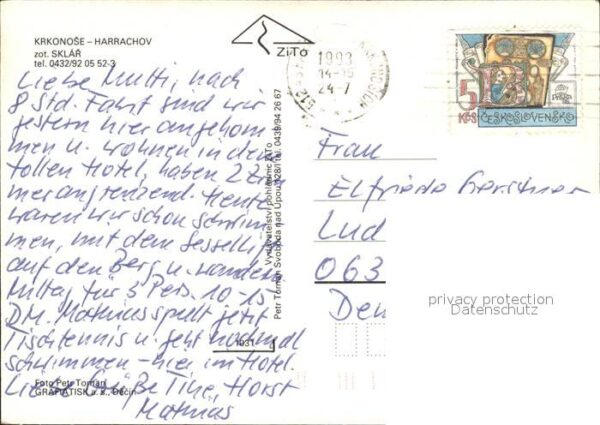 KRKONOŠE – HARRACHOV
zot. SKLÁŘ
tel. 0432/92 05 52-3
Liebe Mutti, nach
8 Std. Fahrt sind wir
gestern hier angekom
men u. wohnen in dem
tollen Hotel, haben 2 Zim
mer angrenzend. Heute
waren wir schon schwim
men, mit dem Sessellift
auf den Berg u. wandern
Mittag für 3 Pers. 10-15
DM. Mathias spielt jetzt
Tischtennis u. geht nochmal
schwimmen – hier im Hotel.
Liebe Grüße Tine, Horst
Mathias
Foto Petr Toman
GRAFIATISK a. s., Děčín
ZiTo
Vydavatelství pohlednic ZiTo
Petr Toman Svoboda nad Úpou 328/Tel. 0439/94 26 67
1031
1993
14-15
24-7
512
5
Kčs
ČESKOSLOVENSKO
PRAGA
Frau
Elfriede Gerstner
Lud
063
Den
privacy protection
Datenschutz